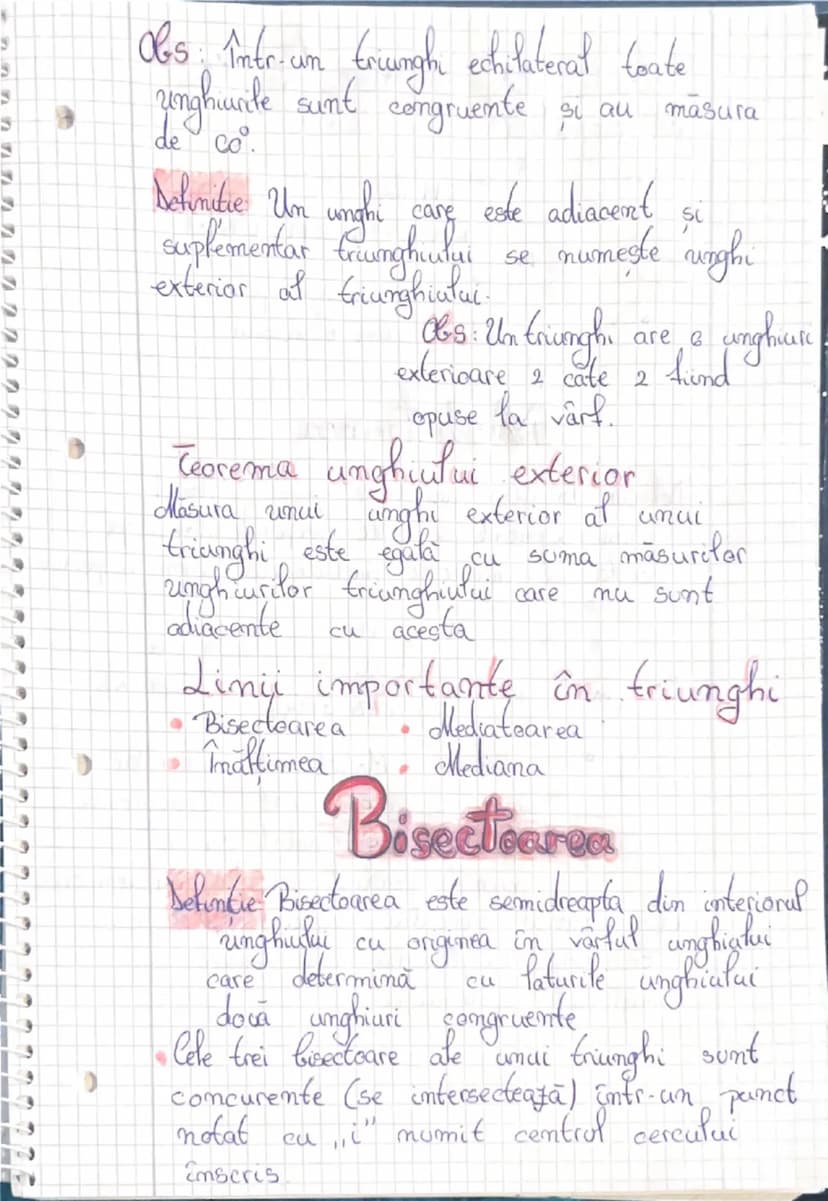 Obs: Într-un triunghi echilateral toate
unghiurile sunt congruente și au măsura
de 60°.
Definiție Un unghi care este adiacent și
suplementar triunghiului se numește unghi
exterior al triunghiului.
Obs: Un triunghi are 6 unghiuri
exterioare 2 câte 2 fiind
opuse la vârf.
Teorema unghiului exterior
Măsura unui unghi exterior al unui
triunghi este egală cu suma măsurilor
unghiurilor triunghiului care nu sunt
adiacente cu acesta
Linii importante în triunghi
• Bisectoarea • Mediatoarea
• Înălțimea • Mediana
Bisectoarea
Definiție Bisectoarea este semidreapta din interiorul
unghiului cu originea în vârful unghiului
care determină cu laturile unghiului
două unghiuri congruente
• Cele trei bisectoare ale unui triunghi sunt
concurente (se intersectează) într-un punct
notat cu „i" numit centrul cercului
înscris